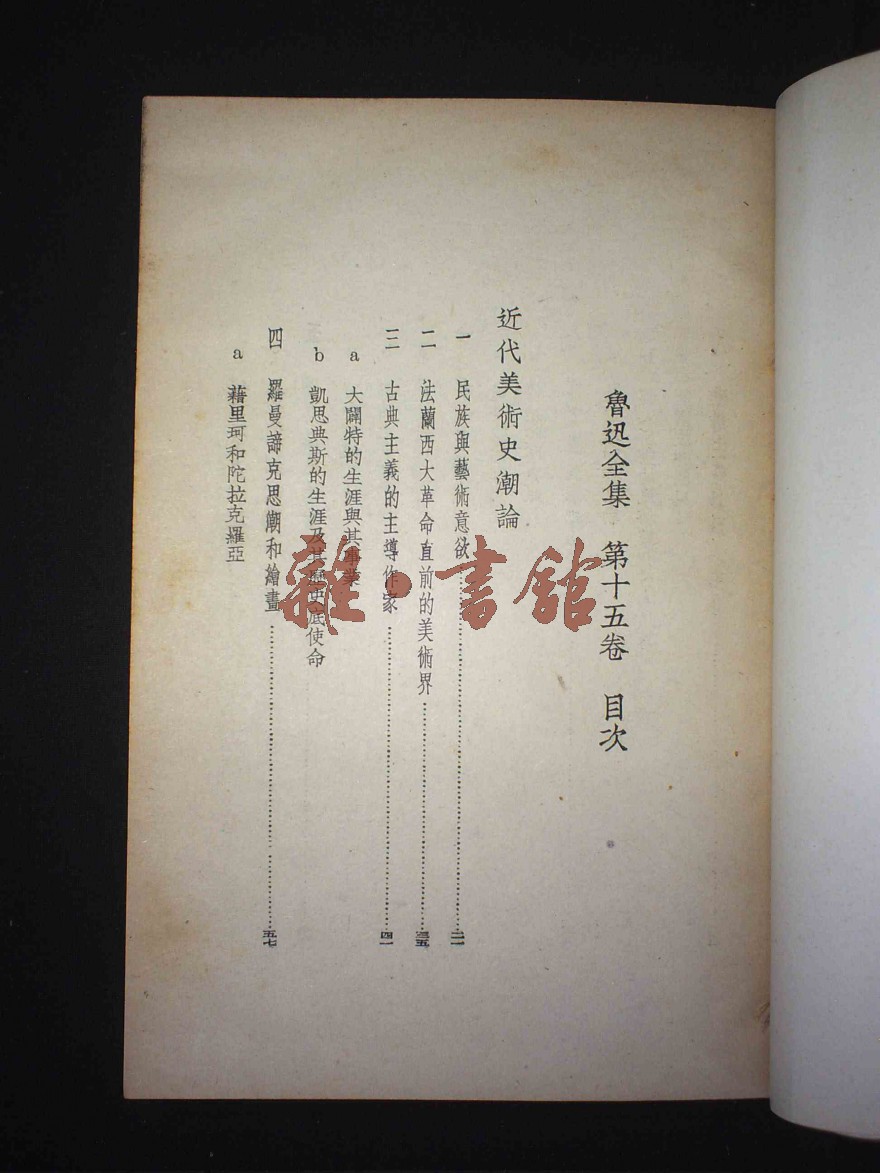 魯迅全集　第十五卷　目次
近代美術史潮論
一　民族與藝術意欲……二一
二　法蘭西大革命直前的美術界……三五
三　古典主義的主導作家……四一
a　大闢特的生涯與其事業
b　凱思典斯的生涯及其歷史底使命
四　羅曼諦克思潮和繪畫……五七
a　藉里珂和陀拉克羅亞
雜·書館